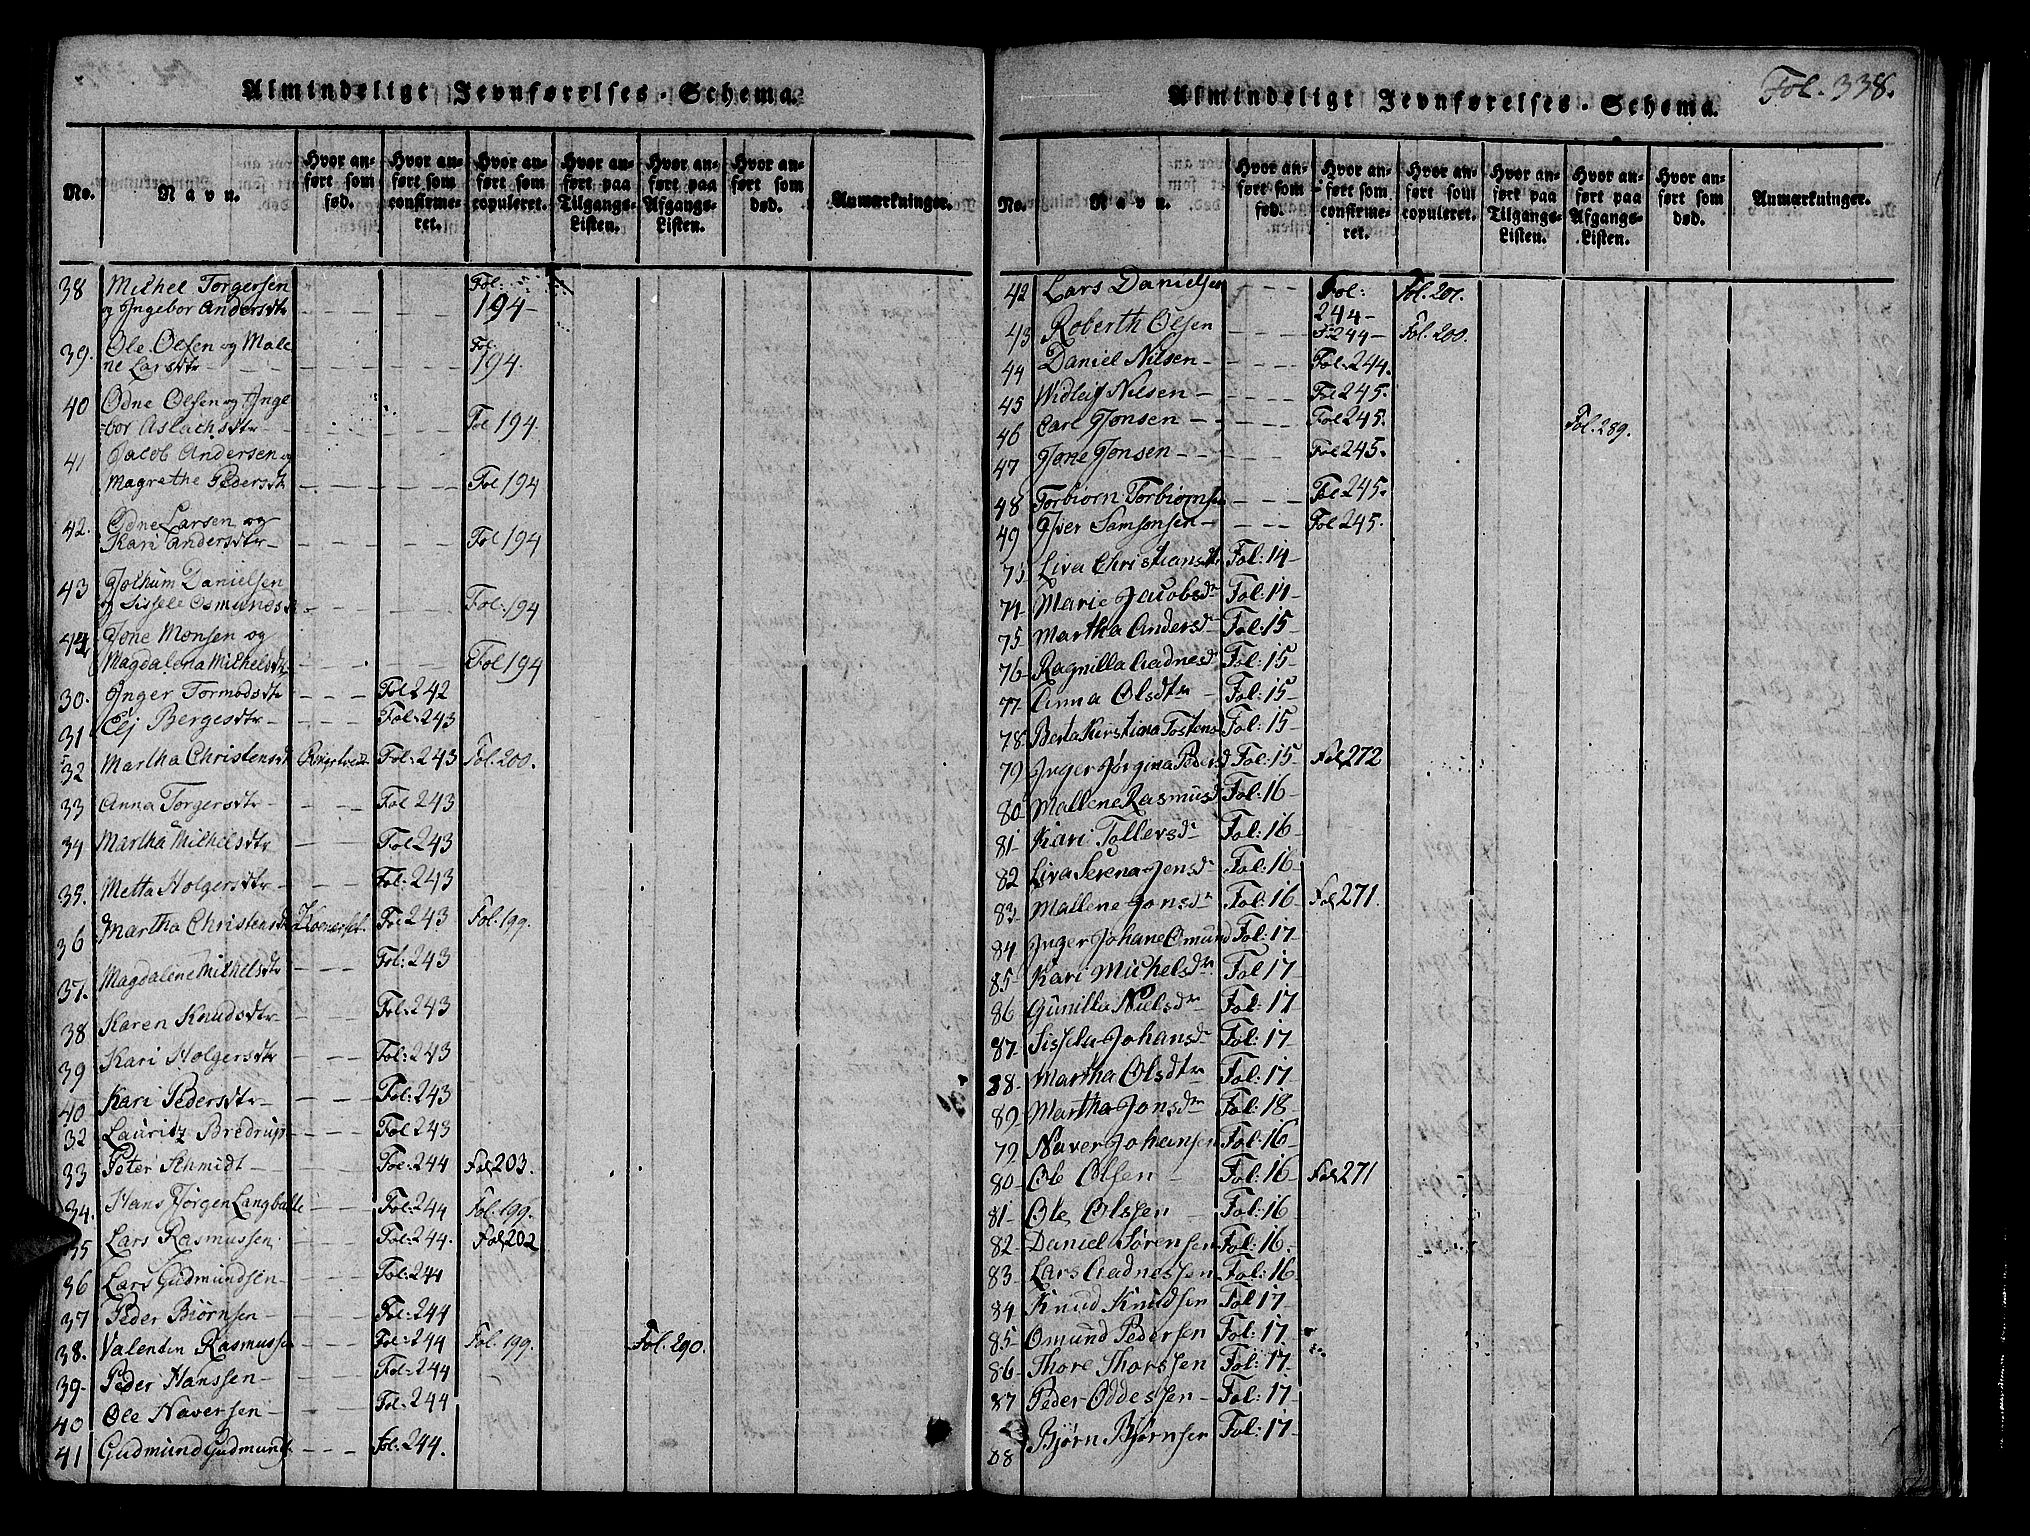 Almindeligt Jevnførelses-Schema.
No. Navn. Hvor anført som fød. Hvor anført som confirmeret. Hvor anført som copuleret. Hvor anført paa Tilgangs-Listen. Hvor anført paa Afgangs-Listen. Hvor anført som død. Anmærkninger.
38 Michel Torgersen Fol:
og Ingebor Andersdtr - - - - 194-
39. Ole Olsen og Male Fol:
ne Larsdtr - - - - 194.
40 Odne Olsen og Inge
bor Aslachsdtr - - - - Fol 194
41 Jacob Andersen og
Magrethe Pedersdtr - - - - Fol 194
42. Odne Larsen og
Kari Andersdtr - - - - Fol 194
43 Jochum Danielsen
og Sissele Osmundsdtr - - - - Fol: 194
44 Jone Monsen og
Magdalena Michelsdtr - - - - Fol 194
30. Inger Tormodsdtr - - - Fol 242
31 Elj Bergesdtr - - - Fol: 243
32 Martha Christensdt Fol: 243 Fol. 200.
33 Anna Torgersdtr - - - Fol 243
34 Martha Michelsdtr - - - Fol 243
35. Metta Holgersdtr - - - Fol: 243
36 Martha Christensdtr Fol: 243 Fol. 199.
37. Magdalene Michelsdtr - - - Fol: 243
38 Karen Knudsdtr - - - Fol: 243
39 Kari Holgersdtr - - - Fol: 243
40 Kari Pedersdtr - - - Fol: 243
32 Lauritz Bredrup - - - Fol 243
33 Peter Schmidt - - - Fol: 244 Fol 203.
34. Hans Jørgen Langballe - - Fol: 244 Fol. 199.
35 Lars Rasmussen - - - Fol: 244. Fol 202
36 Lars Gudmundsen - - - Fol: 244
37 Peder Biørnsen - - - Fol: 244
38. Valentin Rasmussen - - - Fol: 244 Fol. 199. Fol. 290.
39. Peder Hanssen - - - Fol: 244
40 Ole Naversen - - - Fol: 244
41 Gudmund Gudmunds - - - Fol: 244.
Almindeligt Jevnførelses-Schema. Fol. 338.
No. Navn. Hvor anført som fød. Hvor anført som confirmeret. Hvor anført som copuleret. Hvor anført paa Tilgangs-Listen. Hvor anført paa Afgangs-Listen. Hvor anført som død. Anmærkninger.
42 Lars Danielsen - - - Fol: 244- Fol. 201.
43 Roberth Olsen - - - F: 244- Fol. 200.
44 Daniel Nilsen - - - Fol: 244.
45 Widleif Nilsen - - - Fol 245.
46 Carl Jonsen - - - Fol 245. Fol. 289.
47 Jone Jonsen - - - Fol 245.
48 Torbiorn Torbiornsen - - - Fol 245.
49 Iver Samsonsen - - - Fol 245.
73 Liva Christiansdtr Fol: 14-
74- Marie Jacobsdr Fol: 14-
75- Martha Andersdr Fol: 15-
76- Ragnilla Aadnesdr Fol: 15-
77- Anna Olsdtr - Fol: 15-
78- Berta Kirstina Tostensd Fol: 15-
79 Inger Jørgina Pedersd Fol: 15- Fol 272
80- Mallene Rasmusd Fol: 16-
81- Kari Tollevsdr Fol: 16-
82 Liva Serena Jensdr Fol: 16-
83- Mallene Jonsdr Fol: 16- Fol 271.
84 Inger Johane Omund Fol: 17-
85- Kari Michelsdr Fol 17-
86 Gunilla Nielsdr Fol: 17-
87- Sissela Johansdr Fol: 17-
88- Martha Olsdtr Fol: 17-
89 Martha Jonsdr Fol: 18-
79 Naver Johansen Fol: 16-
80- Ole Olsen - Fol: 16- Fol 271
81- Ole Olssen - Fol: 16
82- Daniel Sørensen Fol: 16.
83- Lars Aadnessen Fol: 16-
84- Knud Knudsen Fol 17-
85- Omund Pedersen Fol: 17.
86- Thore Thorssen Fol: 17-
87 Peder Oddessen - Fol: 17-
88 Bjørn Bjørnsen Fol: 17-